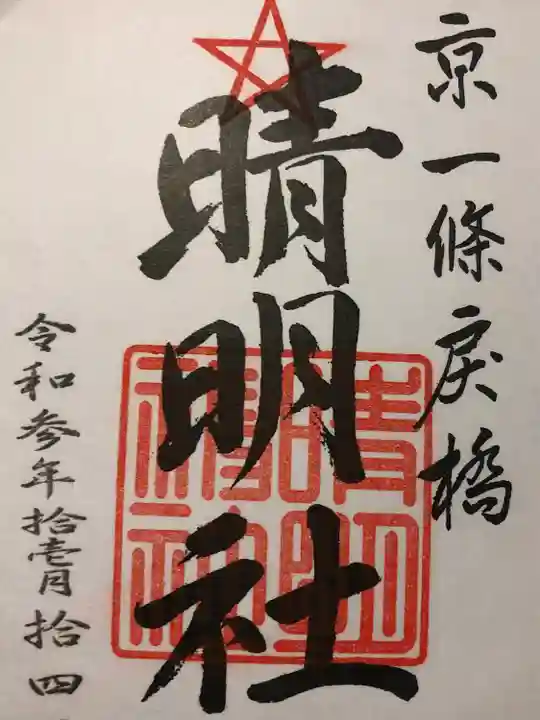 京一條戻橋
晴明社
令和参年拾壱月拾四